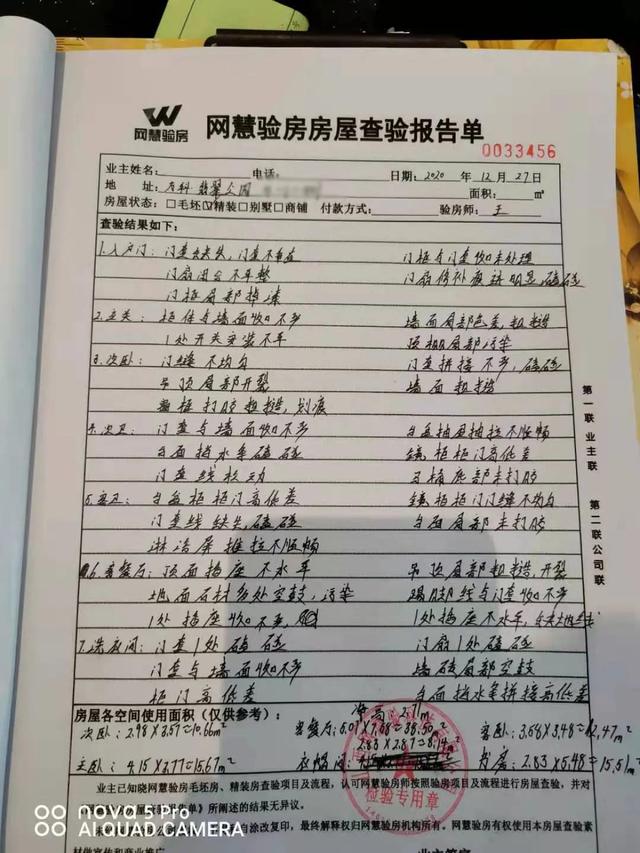 网慧验房
网慧验房房屋查验报告单
0033456
业主姓名: 电话: 日期: 2020 年 12 月 27 日
地 址: 翡翠公园 面积: ㎡
房屋状态: □毛坯☑精装□别墅□商铺 付款方式: 验房师: 王
查验结果如下:
1.入户门: 门套缺失, 门套不垂直 门框与门套收口未处理
门扇闭合不平整 门扇修补痕迹明显,磕碰
门框局部掉漆
2.玄关: 柜体与墙面收口不齐 墙面局部色差,粗糙
1处开关安装不平 顶棚局部污染
3.次卧: 门缝不均匀 门套拼接不齐,磕碰
吊顶局部开裂 墙面粗糙
窗框打胶粗糙,划痕
4.次卫: 门套与墙面收口不齐 台盆抽屉抽拉不顺畅
台面挡水条磕碰 镜柜柜门高低差
门套线松动 马桶底部未打胶
5.客卫: 台盆柜柜门高低差 镜柜柜门门缝不均匀
门套线缺失,磕碰 台面局部未打胶
淋浴屏推拉不顺畅
6.客餐厅: 顶面插座不水平 吊顶局部粗糙,开裂
地面石材多处空鼓,污染 踢脚线与门套收口不齐
1处插座收口不严 1处插座不水平
7.洗衣间: 门套1处磕碰 门扇1处磕碰
门套与墙面收口不齐 墙砖局部空鼓
柜门高低差 台面挡水条拼接高低差
房屋各空间使用面积（仅供参考）: 净高: 2.71m
次卧: 2.98×3.57=10.66m² 客餐厅: 5.01×7.68=38.50m² 客卧: 3.58×3.48=12.47m²
2.83×2.87=8.14m²
主卧: 4.15×3.77=15.67m² 衣帽间: 书房: 2.83×5.48=15.51m²
业主已知晓网慧验房毛坯房、精装房查验项目及流程，认可网慧验房师按照验房项目及流程进行房屋查验，并对
《 报告单》所阐述的结果无异议。
自涂改复印，最终解释权归网慧验房机构所有。网慧验房有权使用本房屋查验素
材做宣传和商业推广
检验专用章
第一联 业主联
第二联 公司联
nova 5 Pro
AI QUAD CAMERA